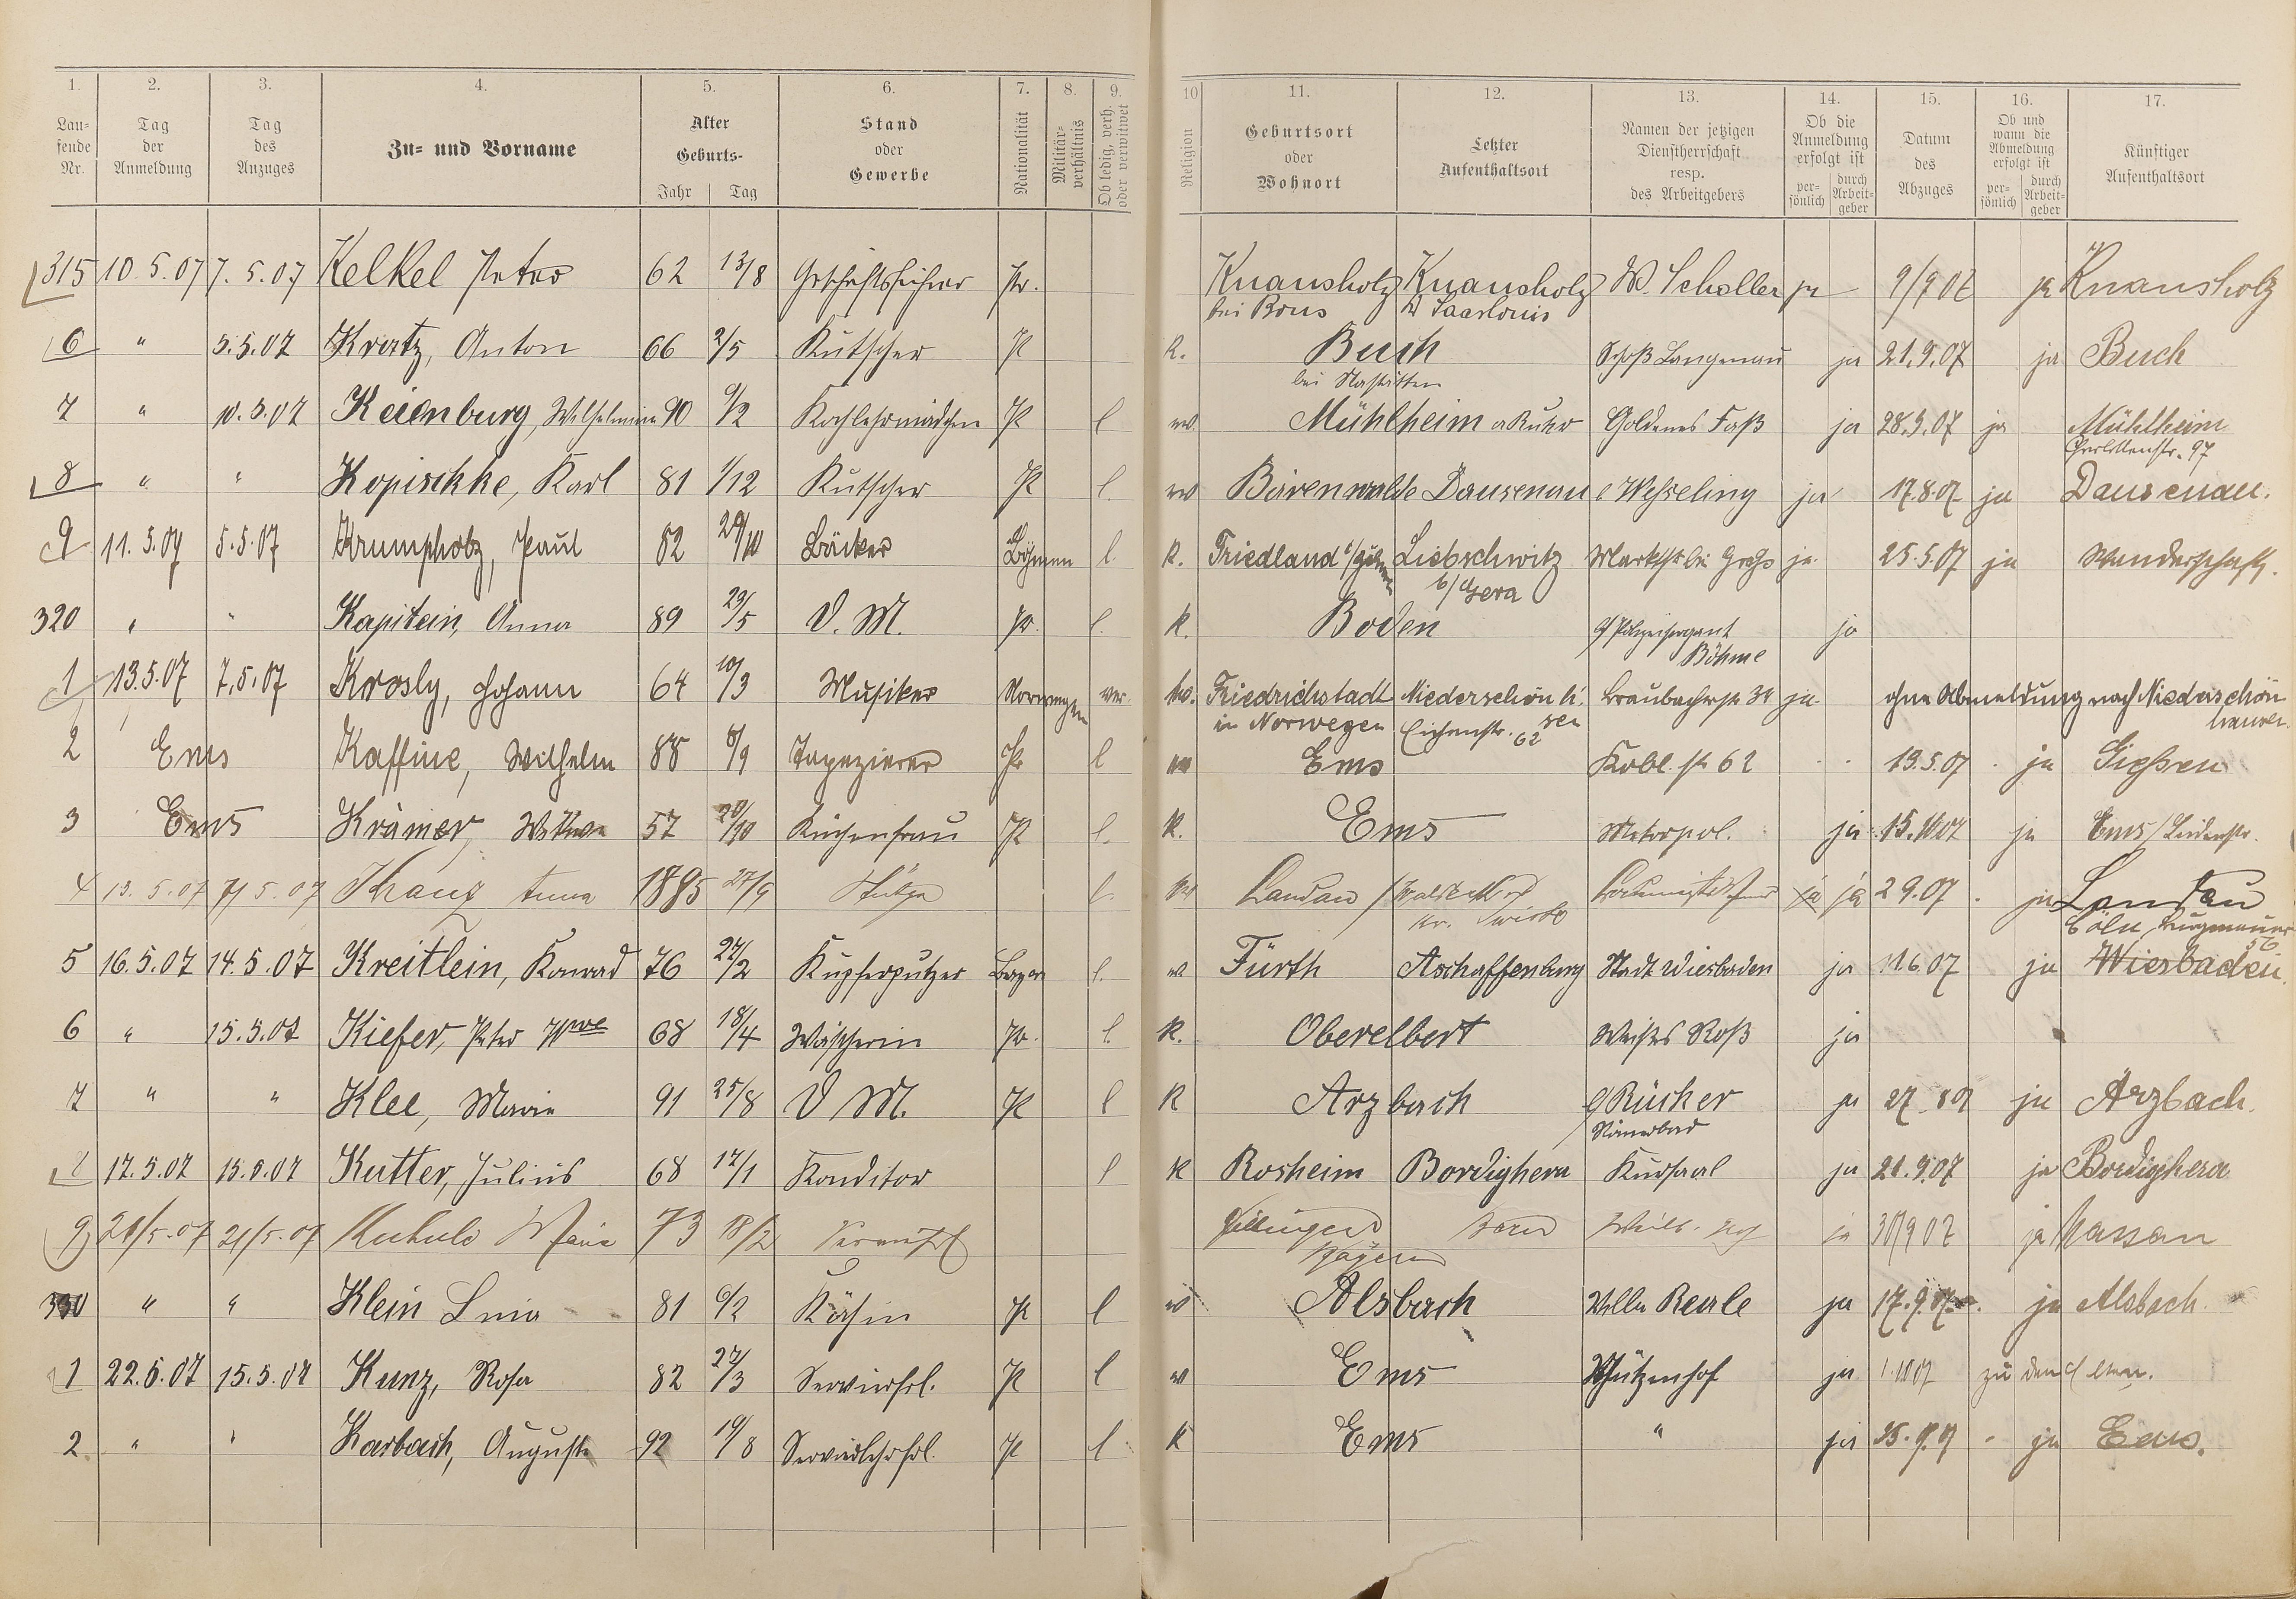 1. 2. 3. 4. 5. 6. 7. 8. 9. 10 11. 12. 13. 14. 15. 16. 17.
Lau-
fende
Nr.
Tag
der
Anmeldung
Tag
des
Anzuges
Zu- und Vorname
Alter
Geburts-
Jahr Tag
Stand
oder
Gewerbe
Nationalität
Militär-
verhältnis
Ob ledig, verh.
oder verwitwet
Religion
Geburtsort
oder
Wohnort
Letzter
Aufenthaltsort
Namen der jetzigen
Dienstherrschaft
resp.
des Arbeitgebers
Ob die
Anmeldung
erfolgt ist
per-
sönlich
durch
Arbeit-
geber
Datum
des
Abzuges
Ob und
wann die
Abmeldung
erfolgt ist
per-
sönlich
durch
Arbeit-
geber
Künftiger
Aufenthaltsort
315 10.5.07 7.5.07 Kelkel Peter 62 13/8 Geschäftsführer Pr. Knausholz Knausholz W. Scholler ja 9/9 07 ja Knausholz
bei Bous Kr Saarlouis
6 " 5.5.07 Kratz, Anton 66 2/5 Kutscher Pr K. Buch Schloß Langenau ja 21.9.07 ja Buch
bei Nastätten
7 " 10.5.07 Keienburg, Wilhelmine 90 9/2 Kochlehrmädchen Pr l ev. Mühlheim a Ruhr Goldenes Faß ja 28.9.07 ja Mühlheim
Charlottenstr. 97
8 " " Kopischke, Karl 81 1/12 Kutscher Pr l. ev Bärenwalde Dausenau Wesseling ja 17.8.07 ja Dausenau.
9 11.5.07 5.5.07 Krumpholz, Paul 82 29/10 Bäcker Böhmen l K. Friedland i/Böhmen Liebschwitz ja 25.5.07 ja Wanderschaft.
b/Gera
320 " " Kapitein, Anna 89 23/5 D. M. Pr. l. K. Boden Polizeisergeant ja
Böhme
1 13.5.07 7.5.07 Krosly, Johann 64 10/3 Musiker Norwegen ver. Friedrichstadt Niederschön h. Braubacherstr 34 ja ohne Abmeldung nach Niederschön
in Norwegen Eichenstr. 62 sen hausen
2 Ems Kaffine, Wilhelm 88 8/9 Tapezierer Pr l ev Ems Kobl. str 62 13.5.07 ja Gießen
3 Ems Krämer, Witwe 57 20/10 Küchenfrau Pr l. K. Ems Metropol. ja 15.10 07 ja Ems/Lindenstr.
4 13.5.07 5.07 Kranz Anna 1885 27/9 Stütze l. ev Landau ja ja 2 9.07 ja Landau
Cöln
5 16.5.07 14.5.07 Kreitlein, Konrad 76 24/2 Kupferputzer Bayer l. ev Fürth Aschaffenburg Stadt Wiesbaden ja 11.6.07 ja Wiesbaden.
6 " 15.5.07 Kiefer, Peter Wwe 68 18/4 Wäscherin Pr. l. K. Oberelbert Weißes Roß ja
7 " " Klee, Marie 91 25/8 D M. Pr l K Arzbach Rücker ja 27.8 07 ja Arzbach.
Römerbad
8 17.5.07 15.5.07 Kutter, Julius 68 17/1 Konditor l K Rosheim Bordighera Kursaal ja 21.9.07 ja Bordighera
9 21/5.07 21/5.07 Marie 73 18/2 ja 30/9 07 ja Nassau
Bayern
330 " " Klein Lina 81 6/2 Köchin Pr l ev Alsbach Villa Beale ja 17.9.07 ja Alsbach.
1 22.5.07 15.5.07 Kunz, Rosa 82 27/3 Servierfrl. Pr l ev Ems Schützenhof ja 1.10 07 zu den Eltern.
2 " " Karbach, Auguste 92 19/8 Servierlehrfrl. Pr l K Ems " ja 25.9.07 ja Ems.